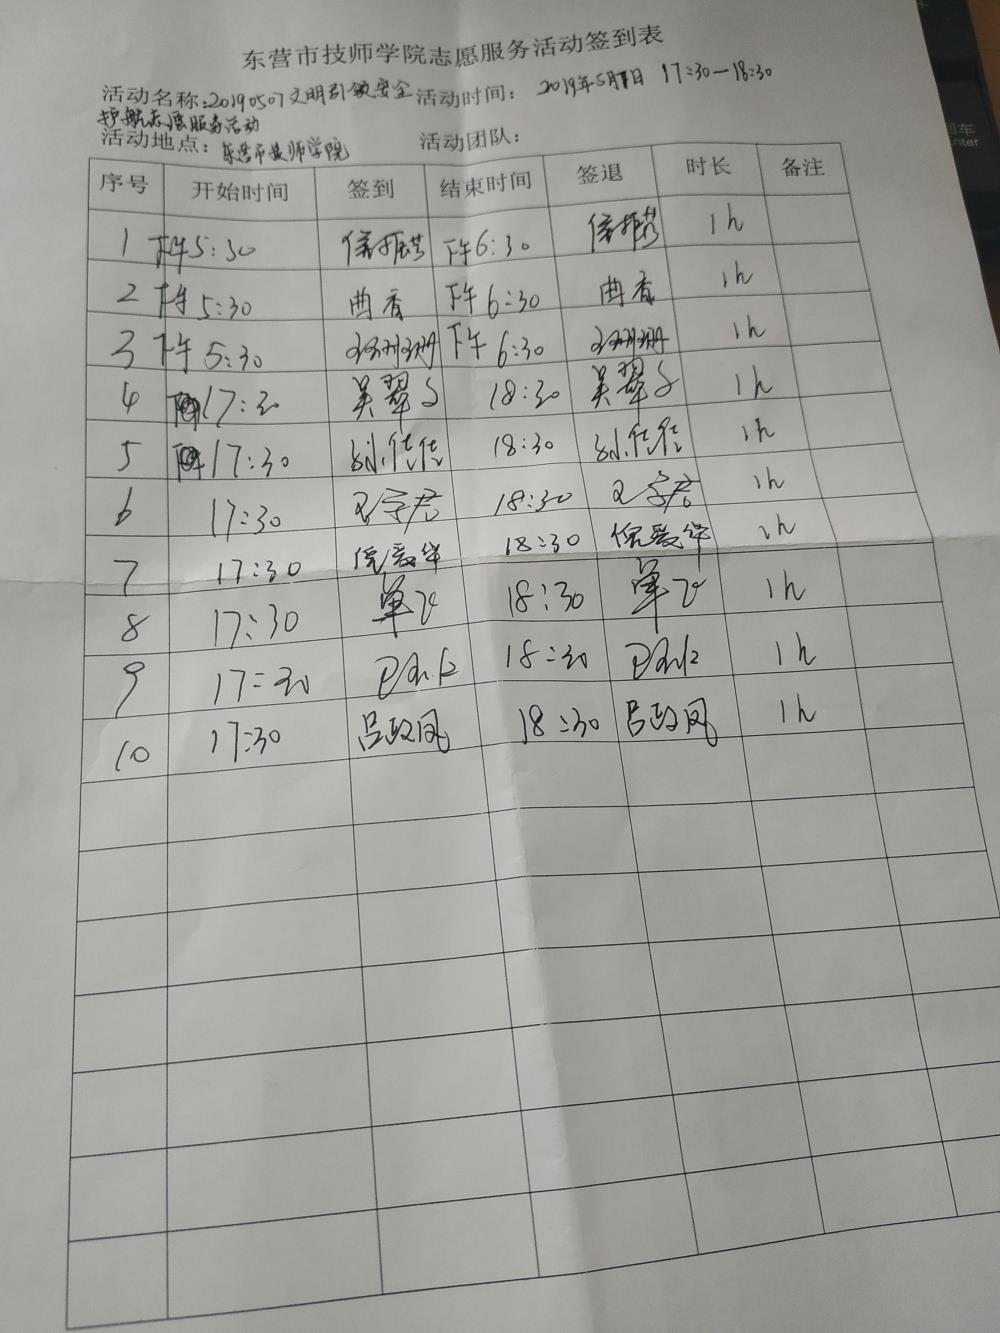 东营市技师学院志愿服务活动签到表
活动名称:20190507文明引领安全 活动时间: 2019年5月7日 17:30—18:30
护航志愿服务活动
活动地点: 东营市技师学院 活动团队:
序号 开始时间 签到 结束时间 签退 时长 备注
1 下午5:30 下午6:30 1h
2 下午5:30 曲香 下午6:30 曲香 1h
3 下午5:30 下午6:30 1h
4 17:30 吴翠 18:30 吴翠 1h
5 17:30 孙佳佳 18:30 孙佳佳 1h
6 17:30 王字君 18:30 王字君 1h
7 17:30 倪爱华 18:30 倪爱华 1h
8 17:30 单飞 18:30 单飞 1h
9 17:30 18:30 1h
10 17:30 吕政凤 18:30 吕政凤 1h
回车
Enter